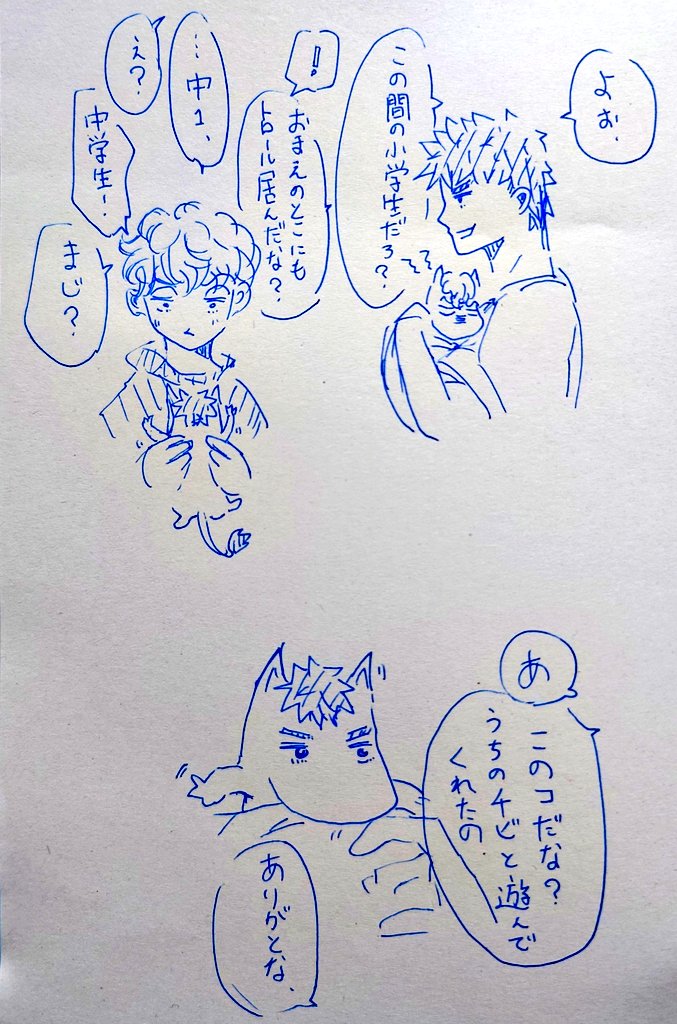 よお.
この間の小学生だろ?
!!
おまえのとこにも
トロール居んだな?
…中1、
え?
中学生!
まじ?
あ
このコだな?
うちのチビと遊んで
くれたの
ありがとな、